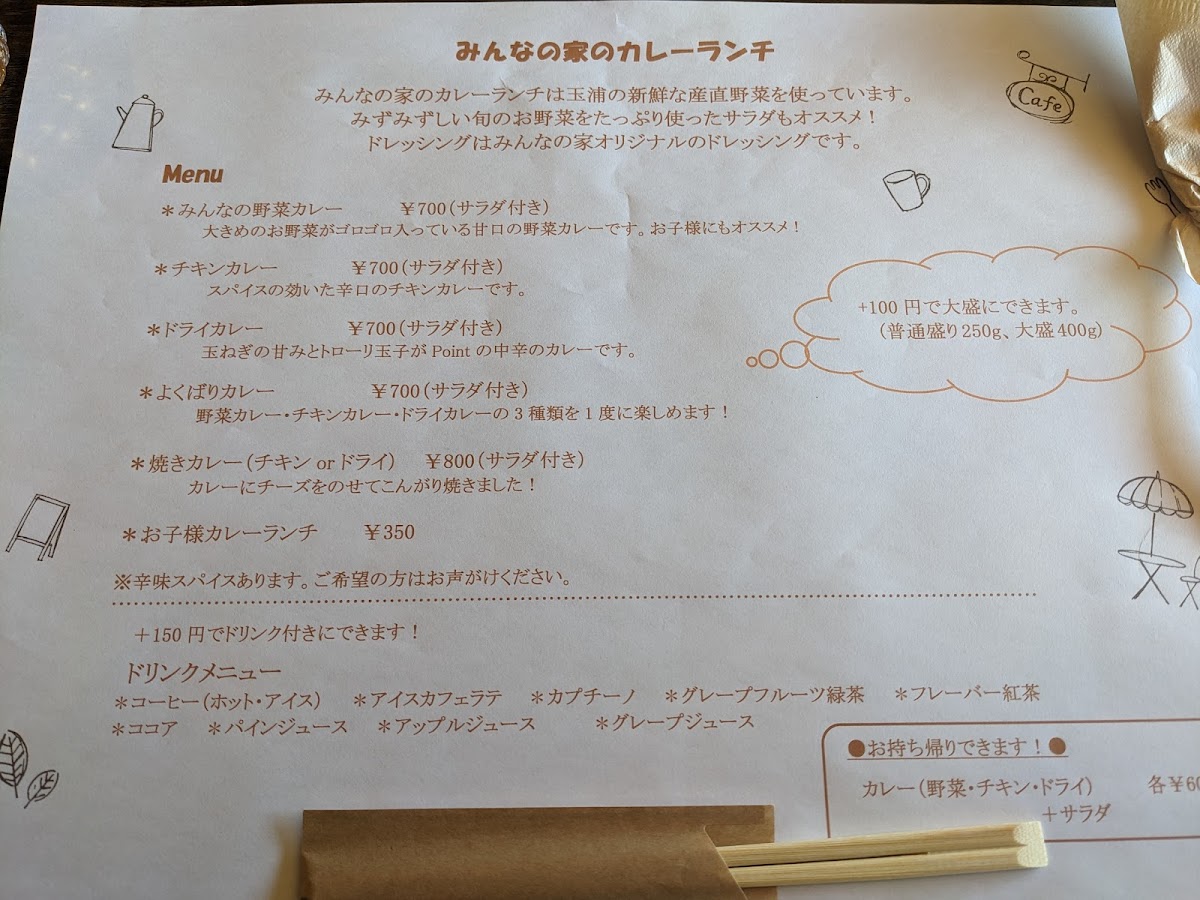 みんなの家のカレーランチ
みんなの家のカレーランチは玉浦の新鮮な産直野菜を使っています。
みずみずしい旬のお野菜をたっぷり使ったサラダもオススメ！
ドレッシングはみんなの家オリジナルのドレッシングです。
Cafe
Menu
＊みんなの野菜カレー ￥700（サラダ付き）
大きめのお野菜がゴロゴロ入っている甘口の野菜カレーです。お子様にもオススメ！
＊チキンカレー ￥700（サラダ付き）
スパイスの効いた辛口のチキンカレーです。
+100 円で大盛にできます。
（普通盛り250g、大盛400g）
＊ドライカレー ￥700（サラダ付き）
玉ねぎの甘みとトローリ玉子が Point の中辛のカレーです。
＊よくばりカレー ￥700（サラダ付き）
野菜カレー・チキンカレー・ドライカレーの 3 種類を 1 度に楽しめます！
＊焼きカレー（チキン or ドライ） ￥800（サラダ付き）
カレーにチーズをのせてこんがり焼きました！
＊お子様カレーランチ ￥350
※辛味スパイスあります。ご希望の方はお声がけください。
＋150 円でドリンク付きにできます！
ドリンクメニュー
＊コーヒー（ホット・アイス） ＊アイスカフェラテ ＊カプチーノ ＊グレープフルーツ緑茶 ＊フレーバー紅茶
＊ココア ＊パインジュース ＊アップルジュース ＊グレープジュース
●お持ち帰りできます！●
カレー（野菜・チキン・ドライ） 各￥60
＋サラダ